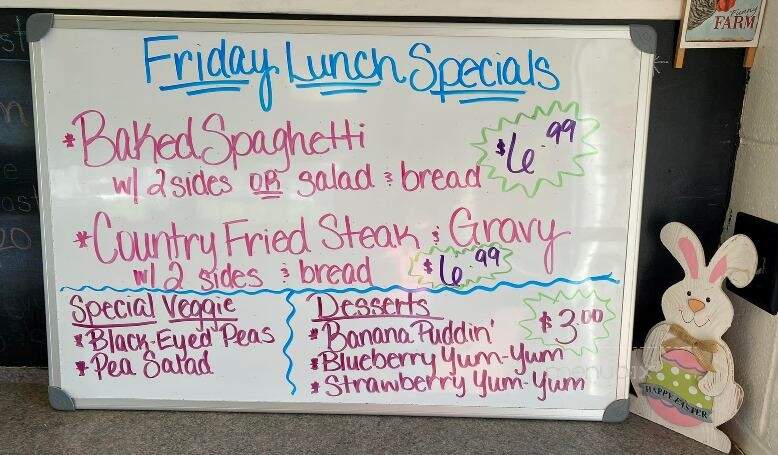 Friday Lunch Specials
*Baked Spaghetti
w/ 2 sides OR salad & bread
$6.99
*Country Fried Steak & Gravy
w/ 2 sides & bread
$6.99
Special Veggie
*Black-Eyed Peas
*Pea Salad
Desserts
$3.00
*Banana Puddin'
*Blueberry Yum-Yum
*Strawberry Yum-Yum
Funny
FARM
HAPPY EASTER